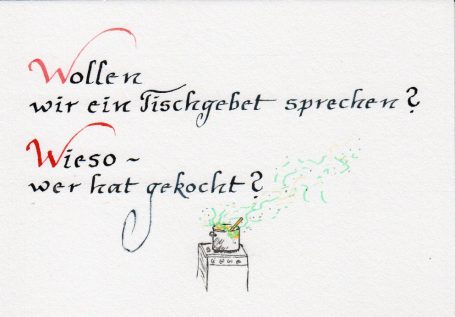 Wollen
wir ein Tischgebet sprechen?
Wieso ~
wer hat gekocht?